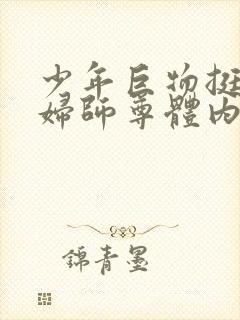 少年巨物挺
婦師尊體內
錦青墨